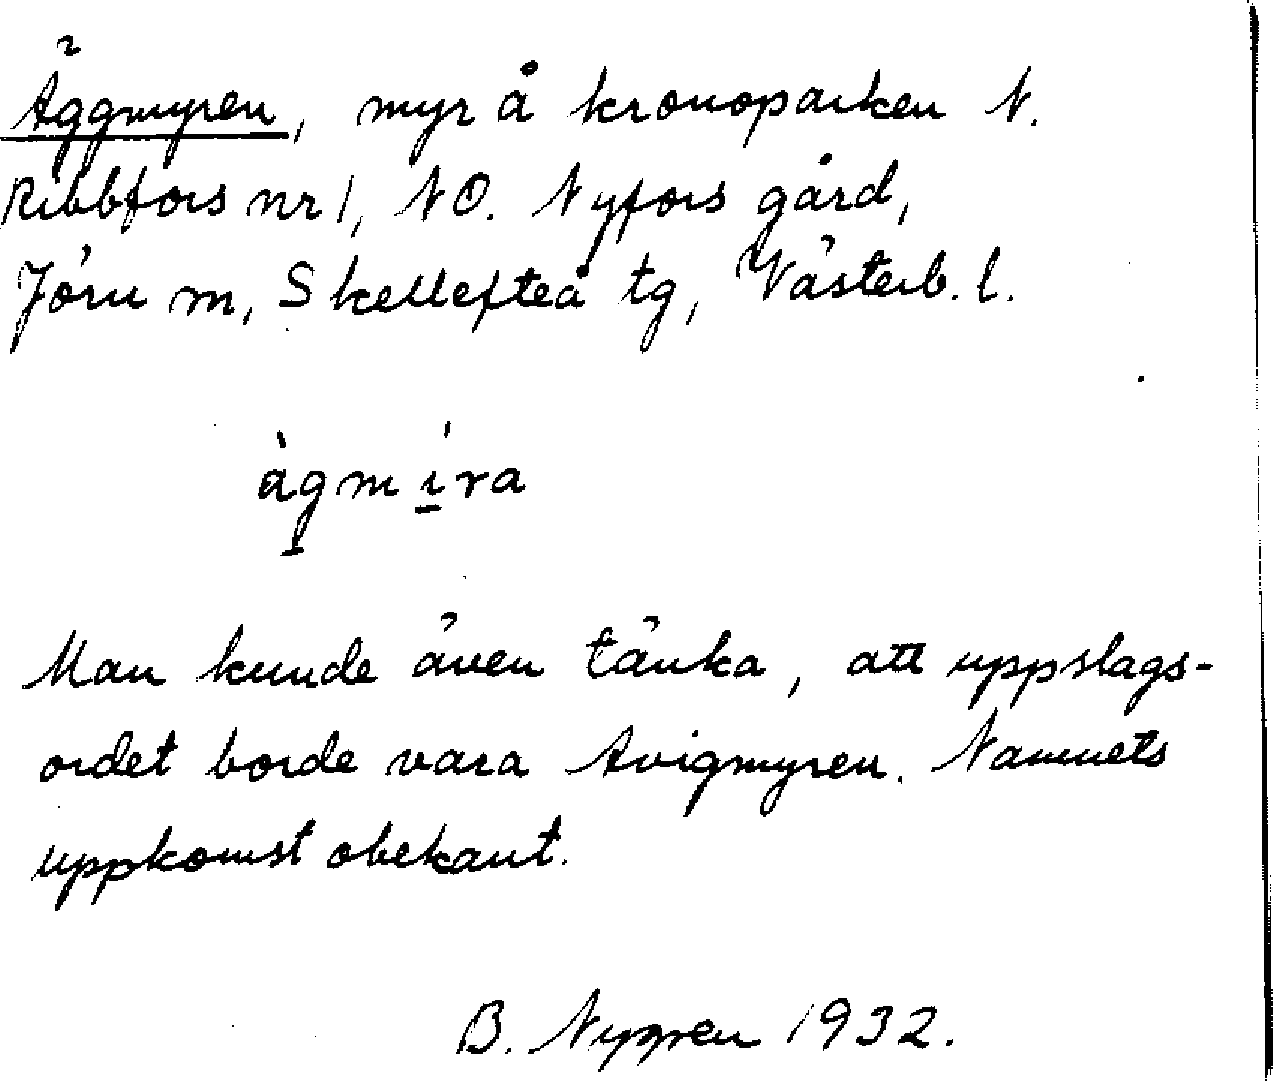 Äggmyren, myr å kronoparken N.
Ribbfors nr 1, NO. Nyfors gård,
Jörn m, Skellefteå tg, Västerb. l.
àgmíra
Man kunde även tänka, att uppslags-
ordet borde vara Avigmyren. Namnets
uppkomst obekant.
B. Nygren 1932.